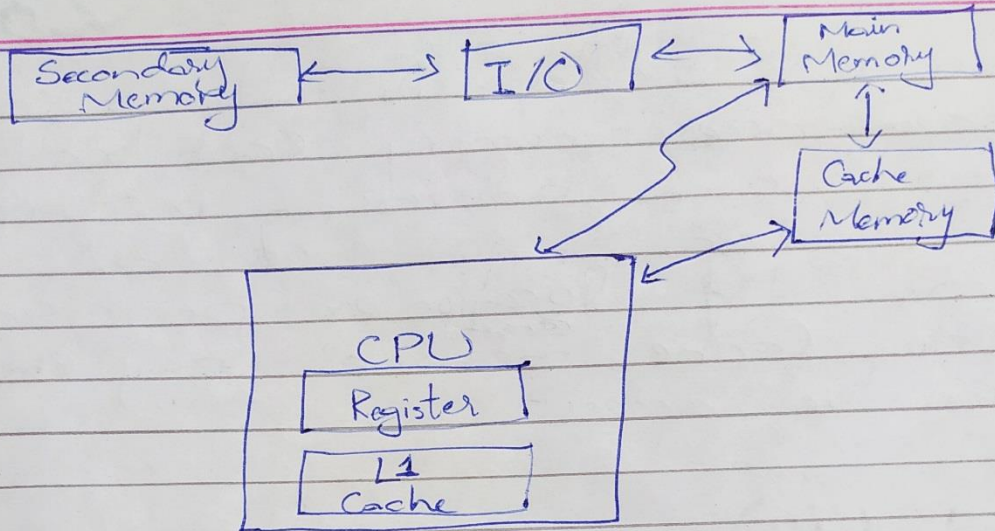 Secondary
Memory
I/O
Main
Memory
Cache
Memory
CPU
Register
L1
Cache